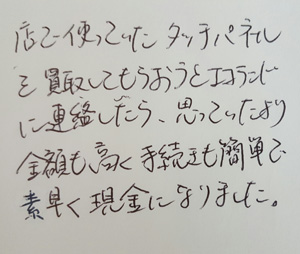 店で使っていたタッチパネル
を買取してもらおうとエコランド
に連絡したら、思っていたより
金額も高く手続きも簡単で
素早く現金になりました。